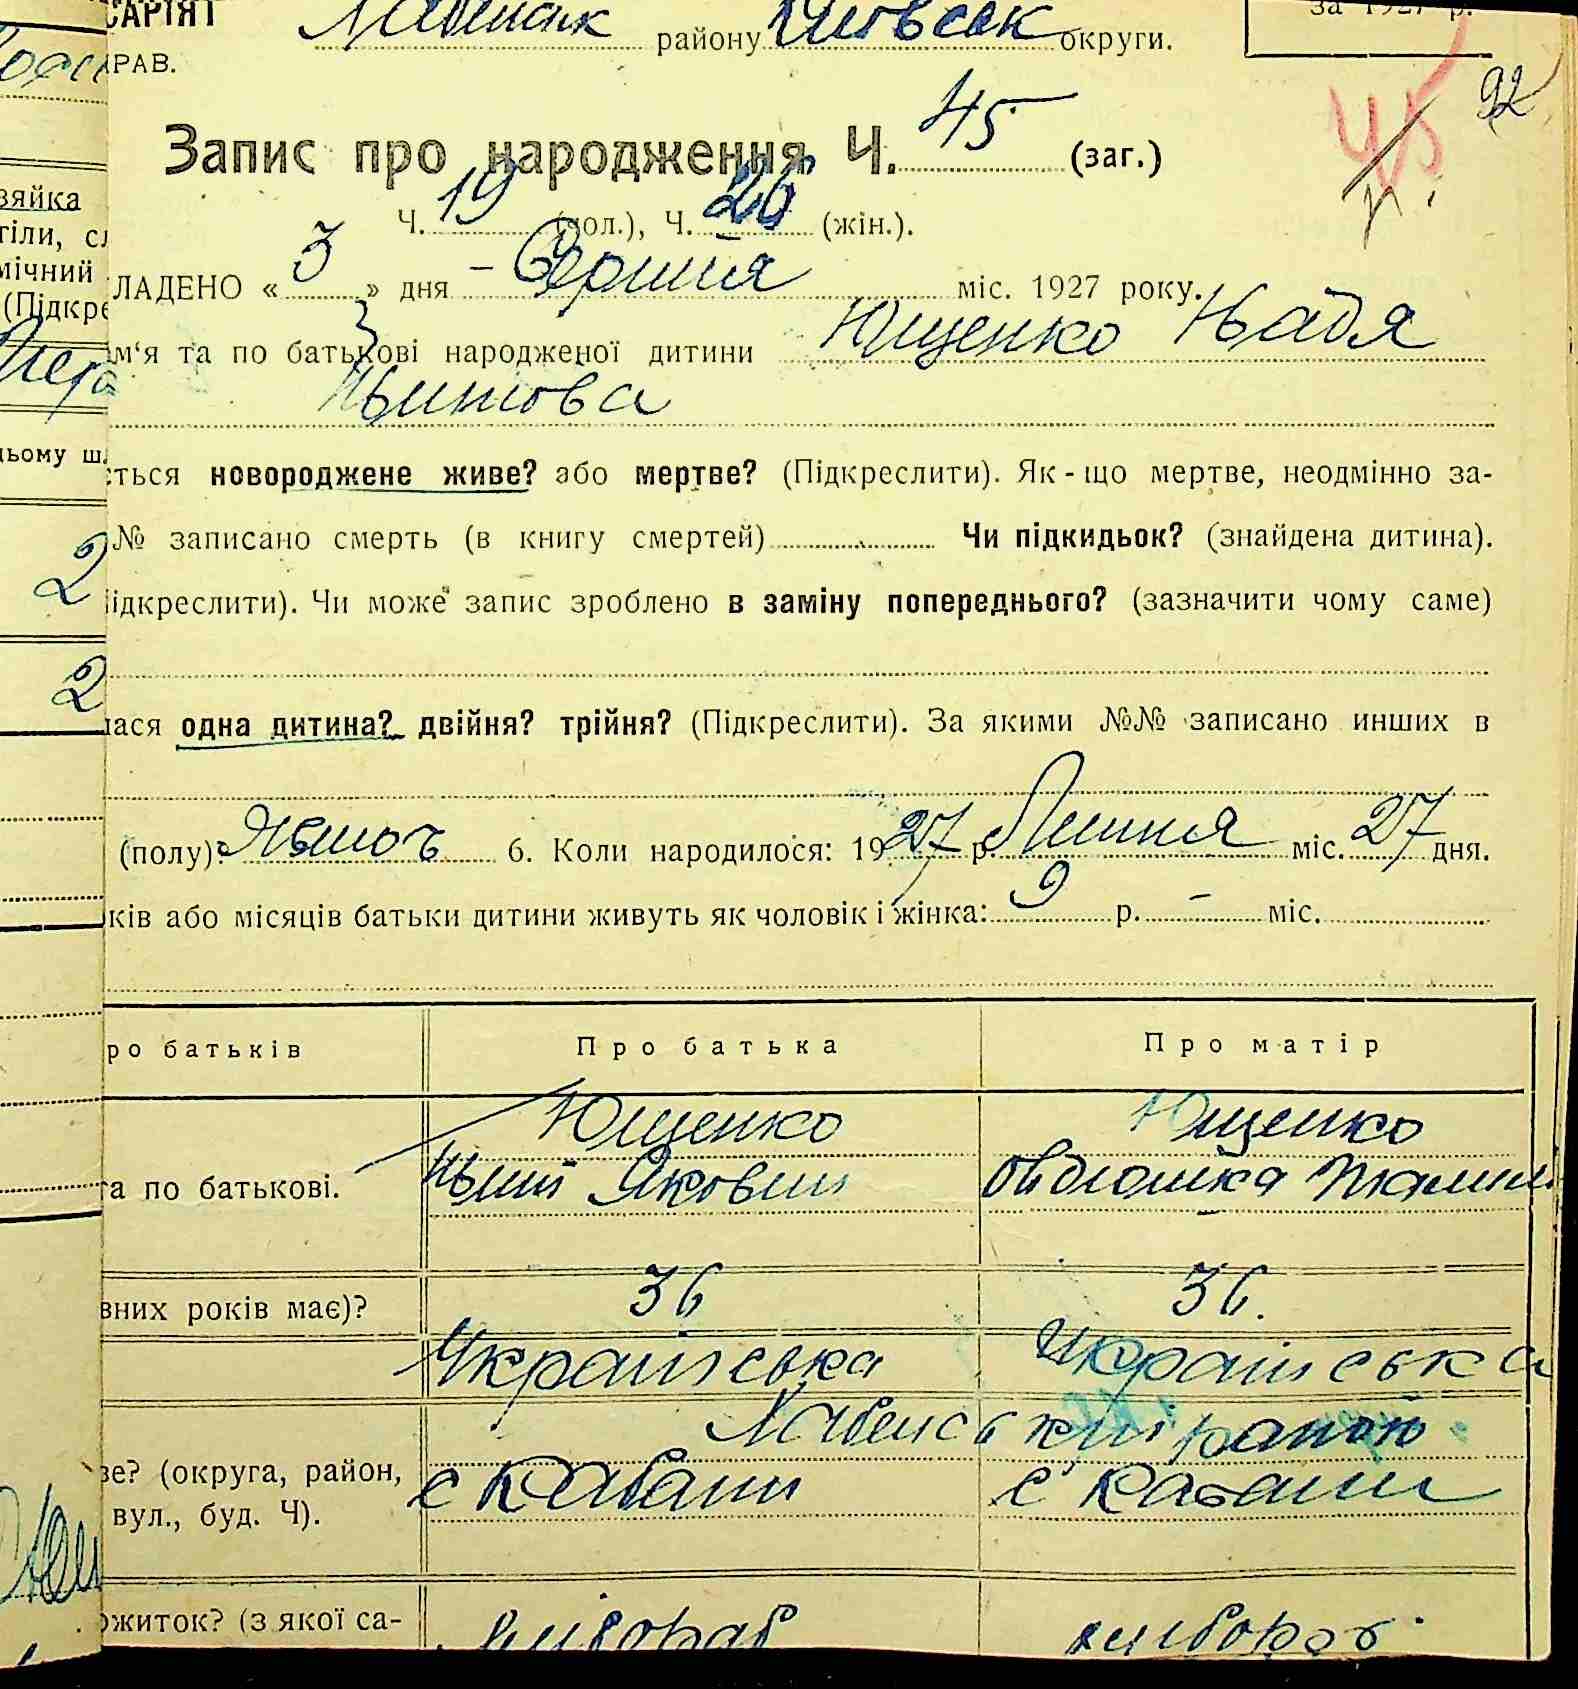 САРІЯТ
РАВ.
району округи.
за 1927 р.
92
45
Запис про народження Ч. 45 (заг.)
Ч. 19 (чол.), Ч. 26 (жін.).
ЛАДЕНО « 3 » дня – Серпня міс. 1927 року.
м‘я та по батькові народженої дитини Ющенко Надя
ється новороджене живе? або мертве? (Підкреслити). Як-що мертве, неодмінно за-
№ записано смерть (в книгу смертей) Чи підкидьок? (знайдена дитина).
ідкреслити). Чи може запис зроблено в заміну попереднього? (зазначити чому саме)
лася одна дитина? двійня? трійня? (Підкреслити). За якими №№ записано инших в
(полу): 6. Коли народилося: 1927 р. Липня міс. 27 дня.
ків або місяців батьки дитини живуть як чоловік і жінка: 9 р. - міс.
ро батьків Про батька Про матір
Ющенко Ющенко
та по батькові. Якович
вних років має)? 36 36.
Українська Українська
району
зе? (округа, район, с Кабани с Кабани
вул., буд. Ч).
ожиток? (з якої са- хлібороб хлібороб
зяйка
тіли, сл
мічний
(Підкре
ньому ш
2
2